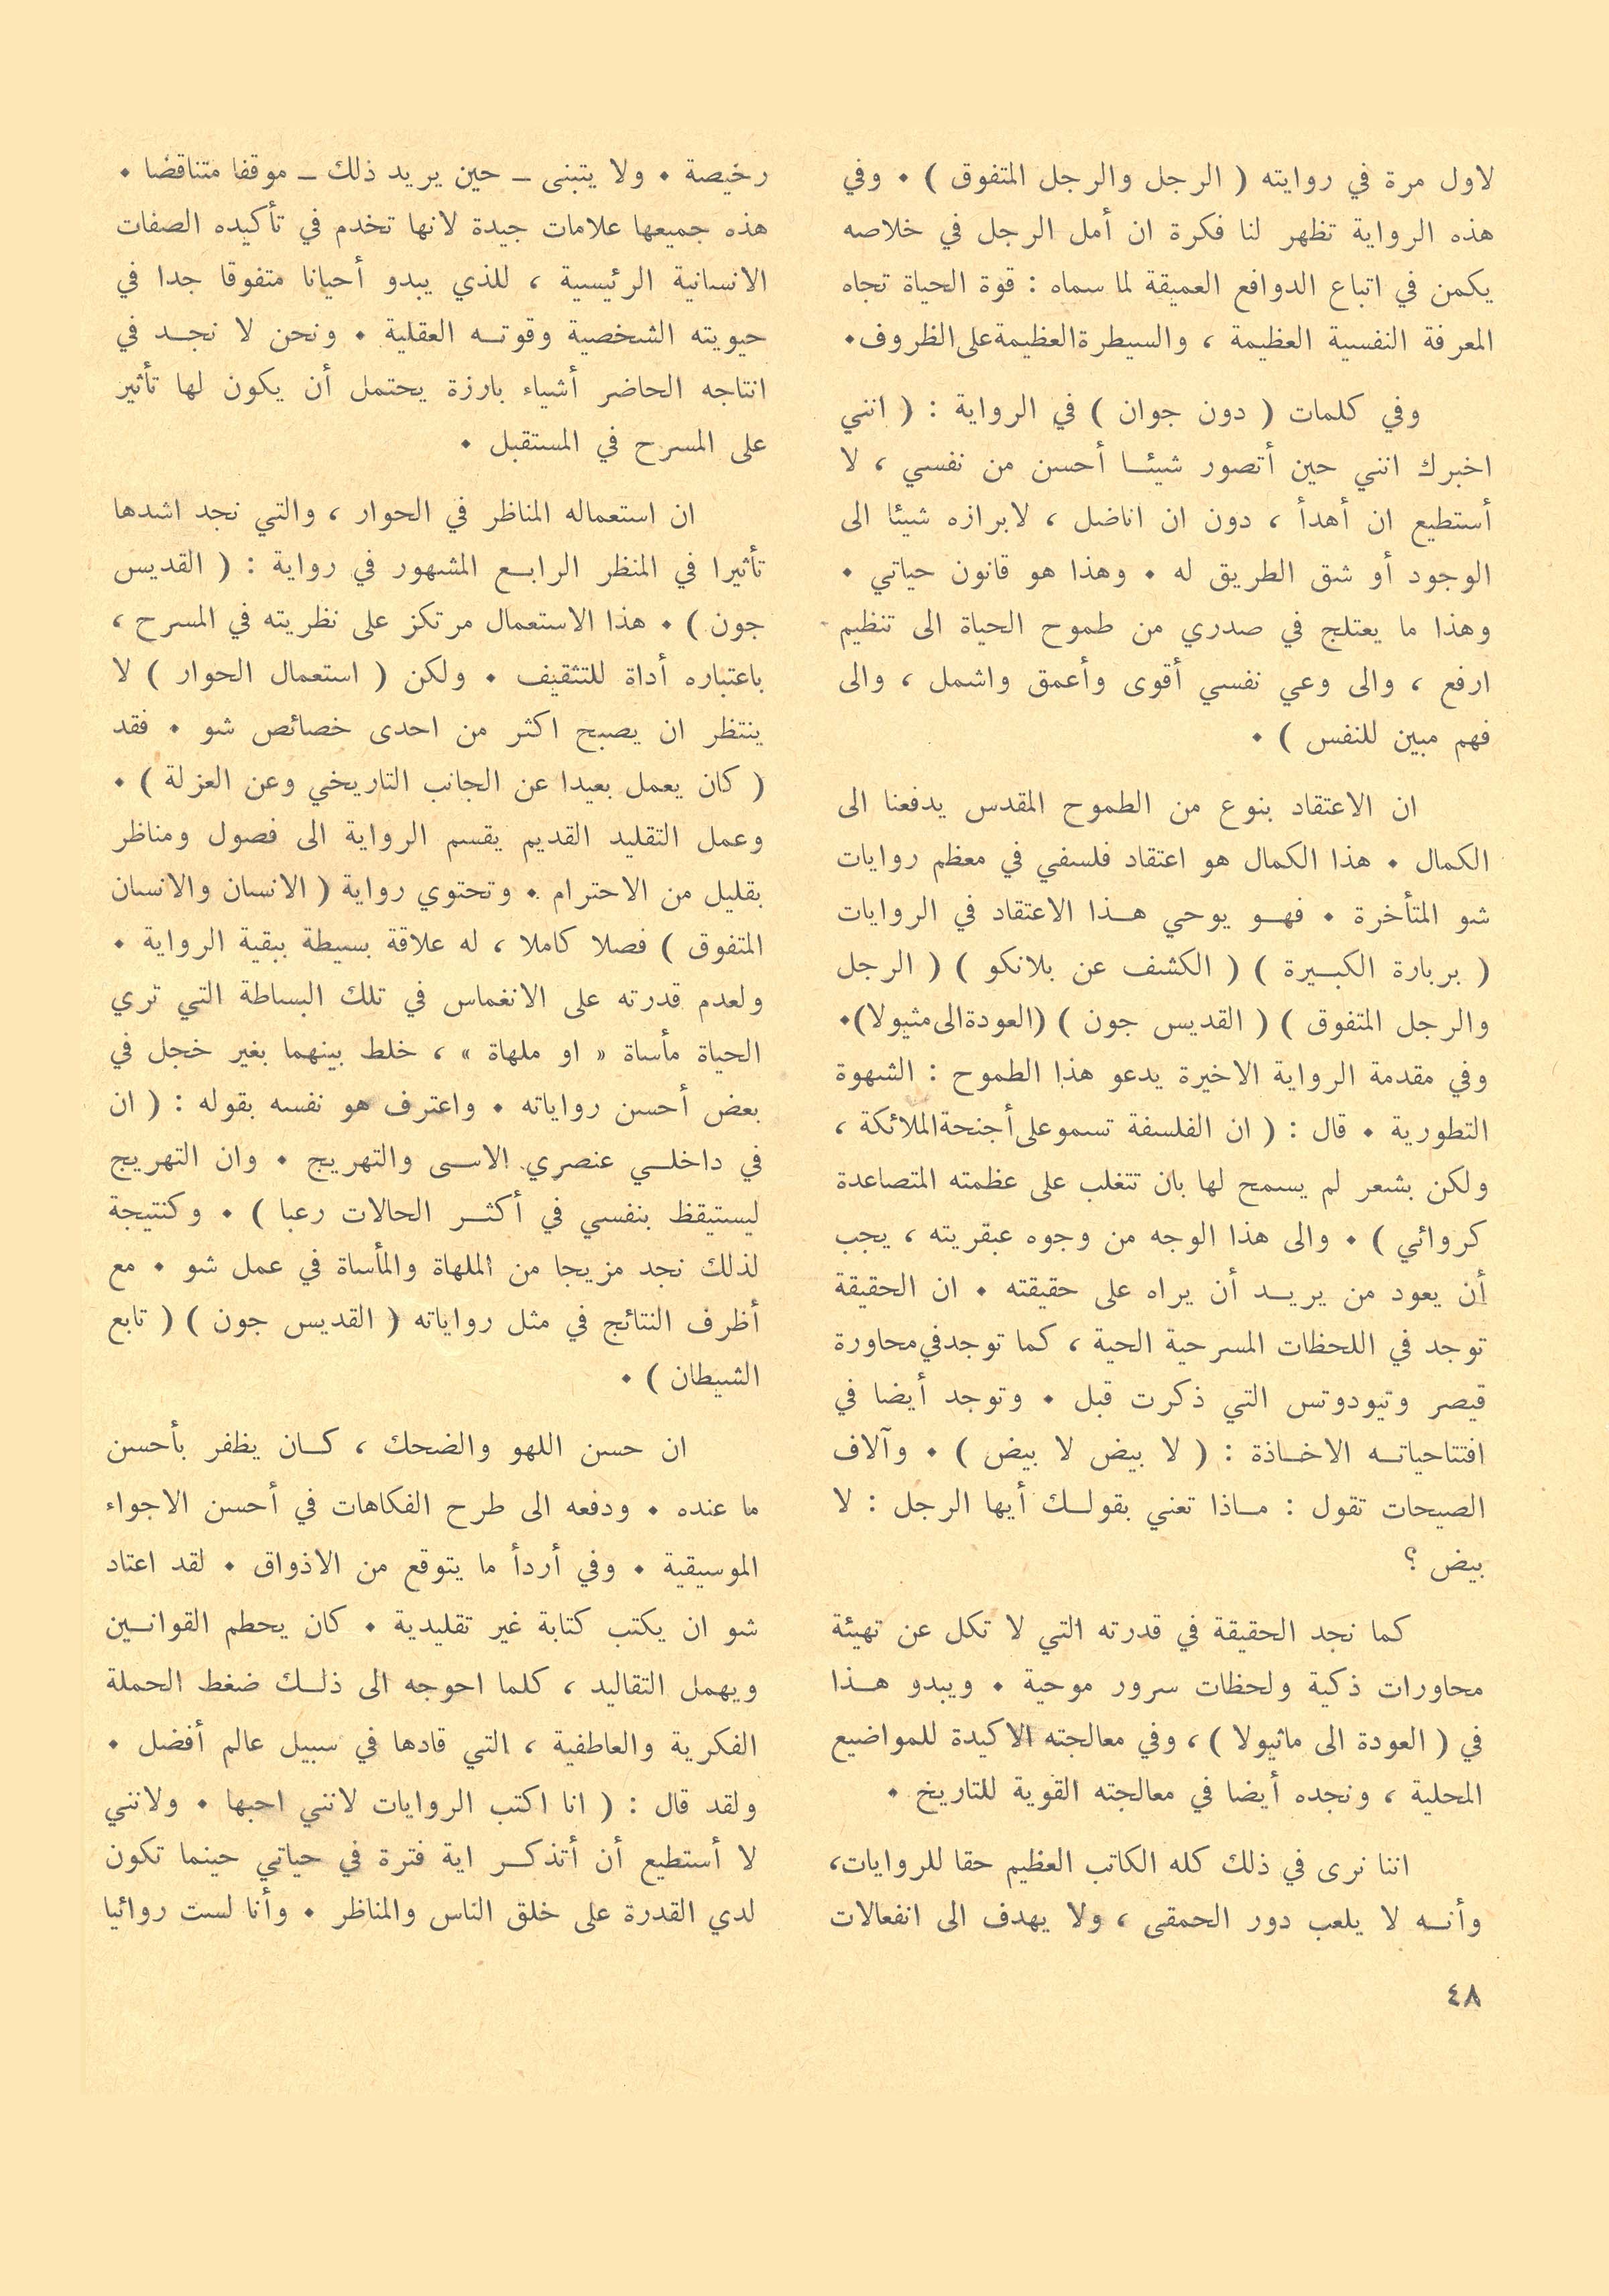 لاول مرة في روايته ( الرجل والرجل المتفوق ) ٠ وفي
هذه الرواية تظهر لنا فكرة ان أمل الرجل في خلاصه
يكمن في اتباع الدوافع العميقة لما سماه : قوة الحياة تجاه
المعرفة النفسية العظيمة ، والسيطرة العظيمة على الظروف٠
وفي كلمات ( دون جوان ) في الرواية : ( انني
اخبرك انني حين أتصور شيئا أحسن من نفسي ، لا
أستطيع ان أهدأ ، دون ان اناضل ، لابرازه شيئا الى
الوجود أو شق الطريق له ٠ وهذا هو قانون حياتي ٠
وهذا ما يعتلج في صدري من طموح الحياة الى تنظيم
ارفع ، والى وعي نفسي أقوى وأعمق واشمل ، والى
فهم مبين للنفس ) ٠
ان الاعتقاد بنوع من الطموح المقدس يدفعنا الى
الكمال ٠ هذا الكمال هو اعتقاد فلسفي في معظم روايات
شو المتأخرة ٠ فهو يوحي هذا الاعتقاد في الروايات
( بربارة الكبيرة ) ( الكشف عن بلانكو ) ( الرجل
والرجل المتفوق ) ( القديس جون ) (العودة الى مثيولا)٠
وفي مقدمة الرواية الاخيرة يدعو هذا الطموح : الشهوة
التطورية ٠ قال : ( ان الفلسفة تسمو على أجنحة الملائكة ،
ولكن بشعر لم يسمح لها بان تتغلب على عظمته المتصاعدة
كروائي ) ٠ والى هذا الوجه من وجوه عبقريته ، يجب
أن يعود من يريد أن يراه على حقيقته ٠ ان الحقيقة
توجد في اللحظات المسرحية الحية ، كما توجد في محاورة
قيصر وتيودوتس التي ذكرت قبل ٠ وتوجد أيضا في
افتتاحياته الاخاذة : ( لا بيض لا بيض ) ٠ وآلاف
الصيحات تقول : ماذا تعني بقولك أيها الرجل : لا
بيض ؟
كما نجد الحقيقة في قدرته التي لا تكل عن تهيئة
محاورات ذكية ولحظات سرور موحية ٠ ويبدو هذا
في ( العودة الى ماثيولا ) ، وفي معالجته الاكيدة للمواضيع
المحلية ، ونجده أيضا في معالجته القوية للتاريخ ٠
اننا نرى في ذلك كله الكاتب العظيم حقا للروايات،
وأنه لا يلعب دور الحمقى ، ولا يهدف الى انفعالات
رخيصة ٠ ولا يتبنى ـ حين يريد ذلك ـ موقفا متناقضا ٠
هذه جميعها علامات جيدة لانها تخدم في تأكيده الصفات
الانسانية الرئيسية ، للذي يبدو أحيانا متفوقا جدا في
حيويته الشخصية وقوته العقلية ٠ ونحن لا نجد في
انتاجه الحاضر أشياء بارزة يحتمل أن يكون لها تأثير
على المسرح في المستقبل ٠
ان استعماله المناظر في الحوار ، والتي نجد اشدها
تأثيرا في المنظر الرابع المشهور في رواية : ( القديس
جون ) ٠ هذا الاستعمال مرتكز على نظريته في المسرح ،
باعتباره أداة للتثقيف ٠ ولكن ( استعمال الحوار ) لا
ينتظر ان يصبح اكثر من احدى خصائص شو ٠ فقد
( كان يعمل بعيدا عن الجانب التاريخي وعن العزلة ) ٠
وعمل التقليد القديم يقسم الرواية الى فصول ومناظر
بقليل من الاحترام ٠ وتحتوي رواية ( الانسان والانسان
المتفوق ) فصلا كاملا ، له علاقة بسيطة ببقية الرواية ٠
ولعدم قدرته على الانغماس في تلك البساطة التي تري
الحياة مأساة « او ملهاة » ، خلط بينهما بغير خجل في
بعض أحسن رواياته ٠ واعترف هو نفسه بقوله : ( ان
في داخلي عنصري الاسى والتهريج ٠ وان التهريج
ليستيقظ بنفسي في أكثر الحالات رعبا ) ٠ وكنتيجة
لذلك نجد مزيجا من الملهاة والمأساة في عمل شو ٠ مع
أظرف النتائج في مثل رواياته ( القديس جون ) ( تابع
الشيطان ) ٠
ان حسن اللهو والضحك ، كان يظفر بأحسن
ما عنده ٠ ودفعه الى طرح الفكاهات في أحسن الاجواء
الموسيقية ٠ وفي أردأ ما يتوقع من الاذواق ٠ لقد اعتاد
شو ان يكتب كتابة غير تقليدية ٠ كان يحطم القوانين
ويهمل التقاليد ، كلما احوجه الى ذلك ضغط الحملة
الفكرية والعاطفية ، التي قادها في سبيل عالم أفضل ٠
ولقد قال : ( انا اكتب الروايات لانني احبها ٠ ولانني
لا أستطيع أن أتذكر اية فترة في حياتي حينما تكون
لدي القدرة على خلق الناس والمناظر ٠ وأنا لست روائيا
٤٨